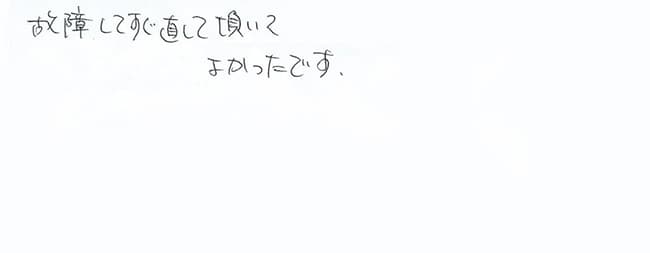 故障してすぐ直して頂いて
よかったです.